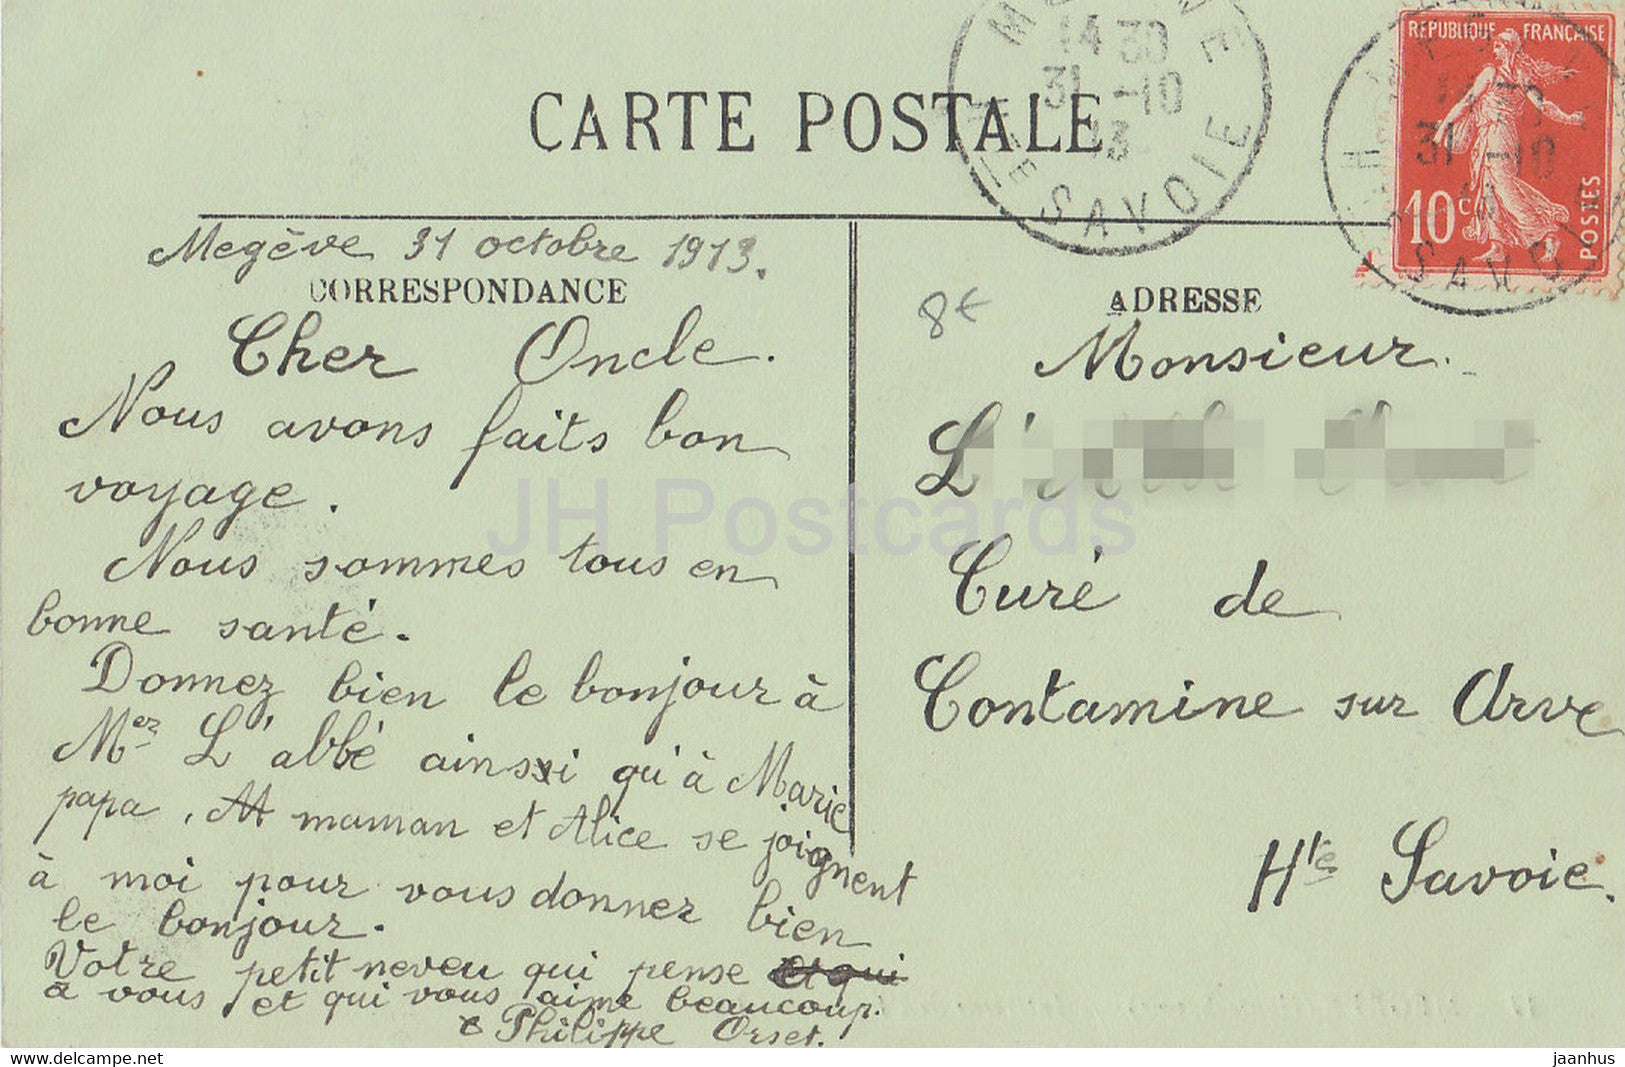 CARTE POSTALE
14 30
31 -10
13
SAVOIE
REPUBLIQUE FRANÇAISE
10c
POSTES
31 -10
SAVOIE
Megève 31 octobre 1913.
CORRESPONDANCE
Cher Oncle.
Nous avons faits bon
voyage.
Nous sommes tous en
bonne santé.
Donnez bien le bonjour à
Mer L'abbé ainsi qu'à Marie
papa, maman et Alice se joignent
à moi pour vous donner bien
le bonjour.
Votre petit neveu qui pense et qui
a vous et qui vous aime beaucoup.
Philippe Orset.
8€
ADRESSE
Monsieur.
L'
Curé de
Contamine sur Arve
Hte Savoie.
JH Postcards
http://www.delcampe.net
jaanhus